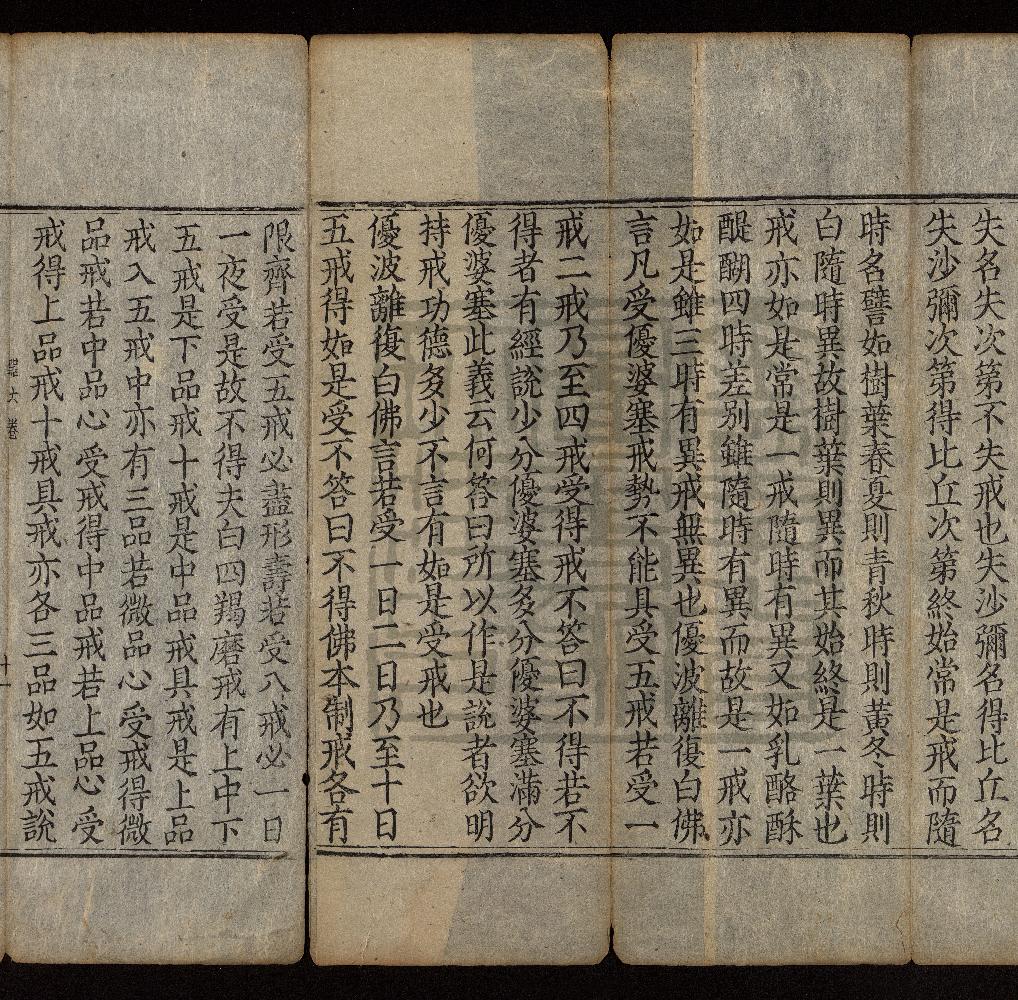 失名失次第不失戒也失沙彌名得比丘名
失沙彌次第得比丘次第終始常是戒而隨
時名譬如樹葉春夏則青秋時則黃冬時則
白隨時異故樹葉則異而其始終是一葉也
戒亦如是常是一戒隨時有異又如乳酪酥
醍醐四時差别雖隨時有異而故是一戒亦
如是雖三時有異戒無異也優波離復白佛
言凡受優婆塞戒勢不能具受五戒若受一
戒二戒乃至四戒受得戒不答曰不得若不
得者有經說少分優婆塞多分優婆塞滿分
優婆塞此義云何答曰所以作是說者欲明
持戒功德多少不言有如是受戒也
優波離復白佛言若受一日二日乃至十日
五戒得如是受不答曰不得佛本制戒各有
限齊若受五戒必盡形壽若受八戒必一日
一夜受是故不得夫白四羯磨戒有上中下
五戒是下品戒十戒是中品戒具戒是上品
戒入五戒中亦有三品若微品心受戒得微
品戒若中品心受戒得中品戒若上品心受
戒得上品戒十戒具戒亦各三品如五戒說